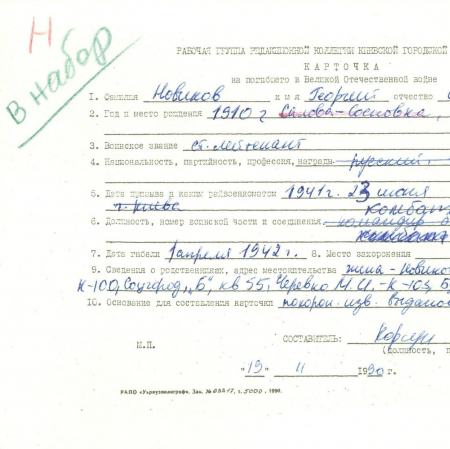 Н
В набор
РАБОЧАЯ ГРУППА РЕДАКЦИОННОЙ КОЛЛЕГИИ КИЕВСКОЙ ГОРОДСКОЙ
КАРТОЧКА
на погибшего в Великой Отечественной войне
1. Фамилия Новиков имя Георгий отчество
2. Год и место рождения 1910 г Салова-Сосновка,
3. Воинское звание ст. лейтенант
4. Национальность, партийность, профессия, награды русский,
5. Дата призыва и каким райвоенкоматом 1941 г. 23 июня
г. Киева
6. Должность, номер воинской части и соединения командир
7. Дата гибели 1 апреля 1942 г. 8. Место захоронения
9. Сведения о родственниках, адрес местожительства жена - Новиков
К-100, Соцгород, "Б", кв 55, М.И. - К-103, Б
10. Основание для составления карточки похорон. изв. выдано
СОСТАВИТЕЛЬ:
М.П. (должность, п
"19" 11 1990 г.
РАПО «Укрвузполиграф». Зак. № 0382/7, т. 5000, 1990.